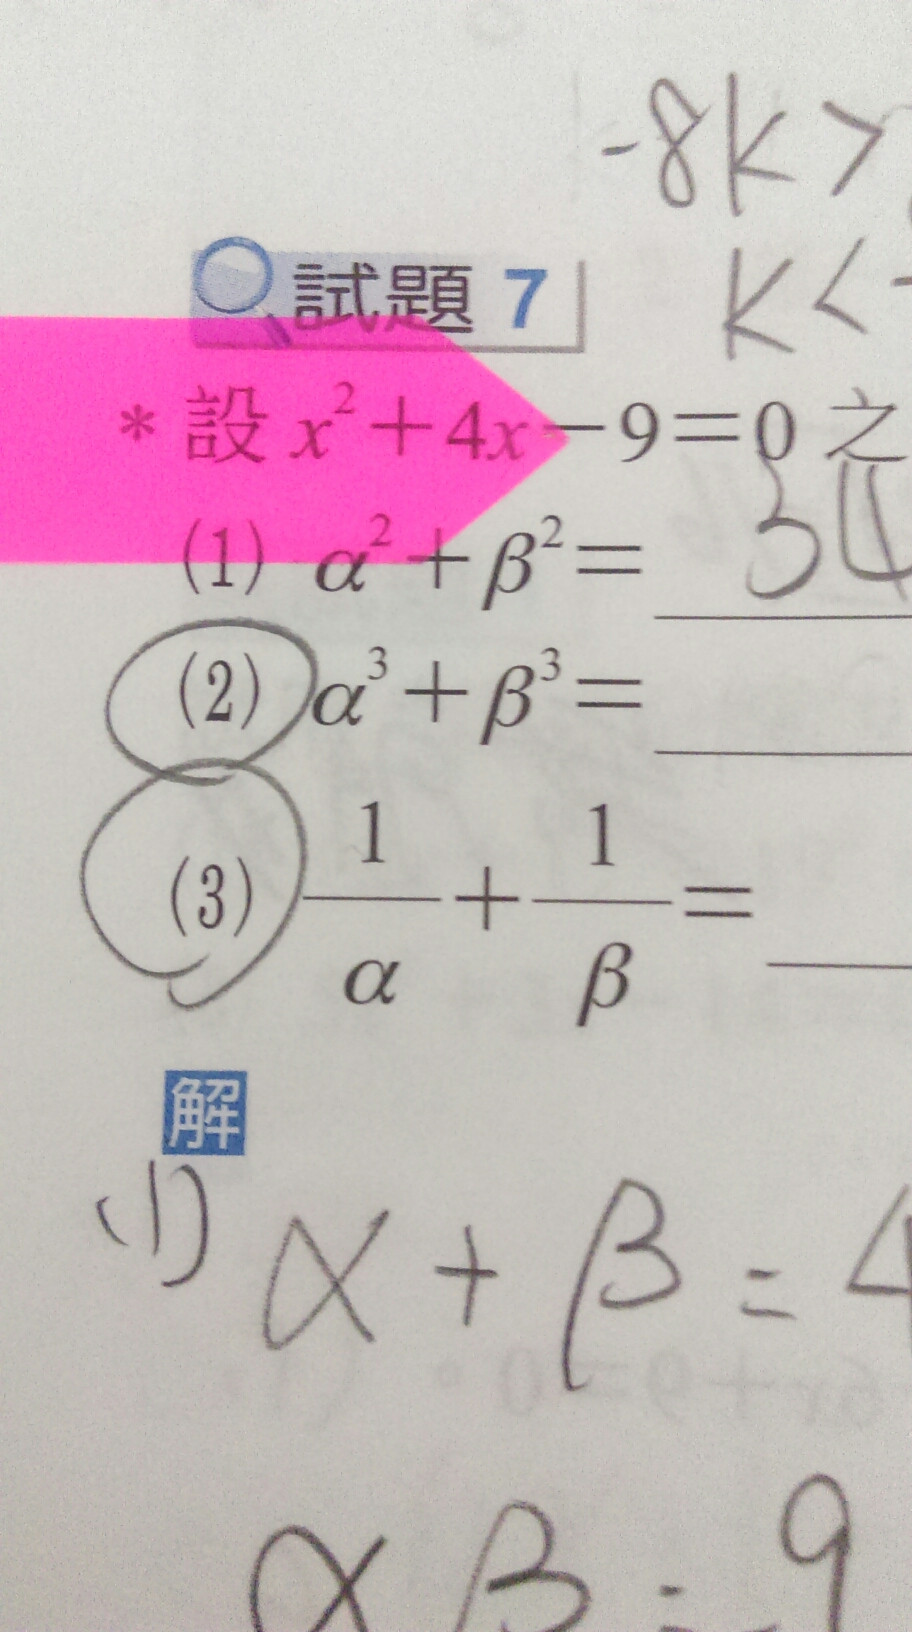 -8k >
k <
試題 7
* 設 x² + 4x - 9 = 0 之
(1) α² + β² = 34
(2) α³ + β³ =
(3) 1/α + 1/β =
解
(1) α + β = 4
αβ = 9